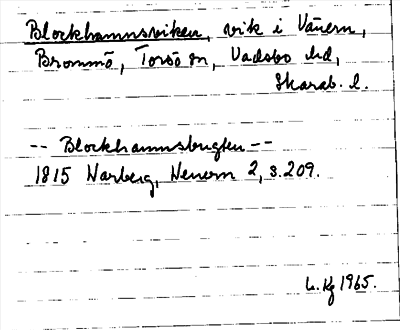 Blockhamnsviken, vik i Vänern,
Brommö, Torsö sn, Vadsbo hd,
Skarab. l.
-- Blockhamnsbugten --
1815 Warberg, Wenern 2, s. 209.
L. Kg 1965.